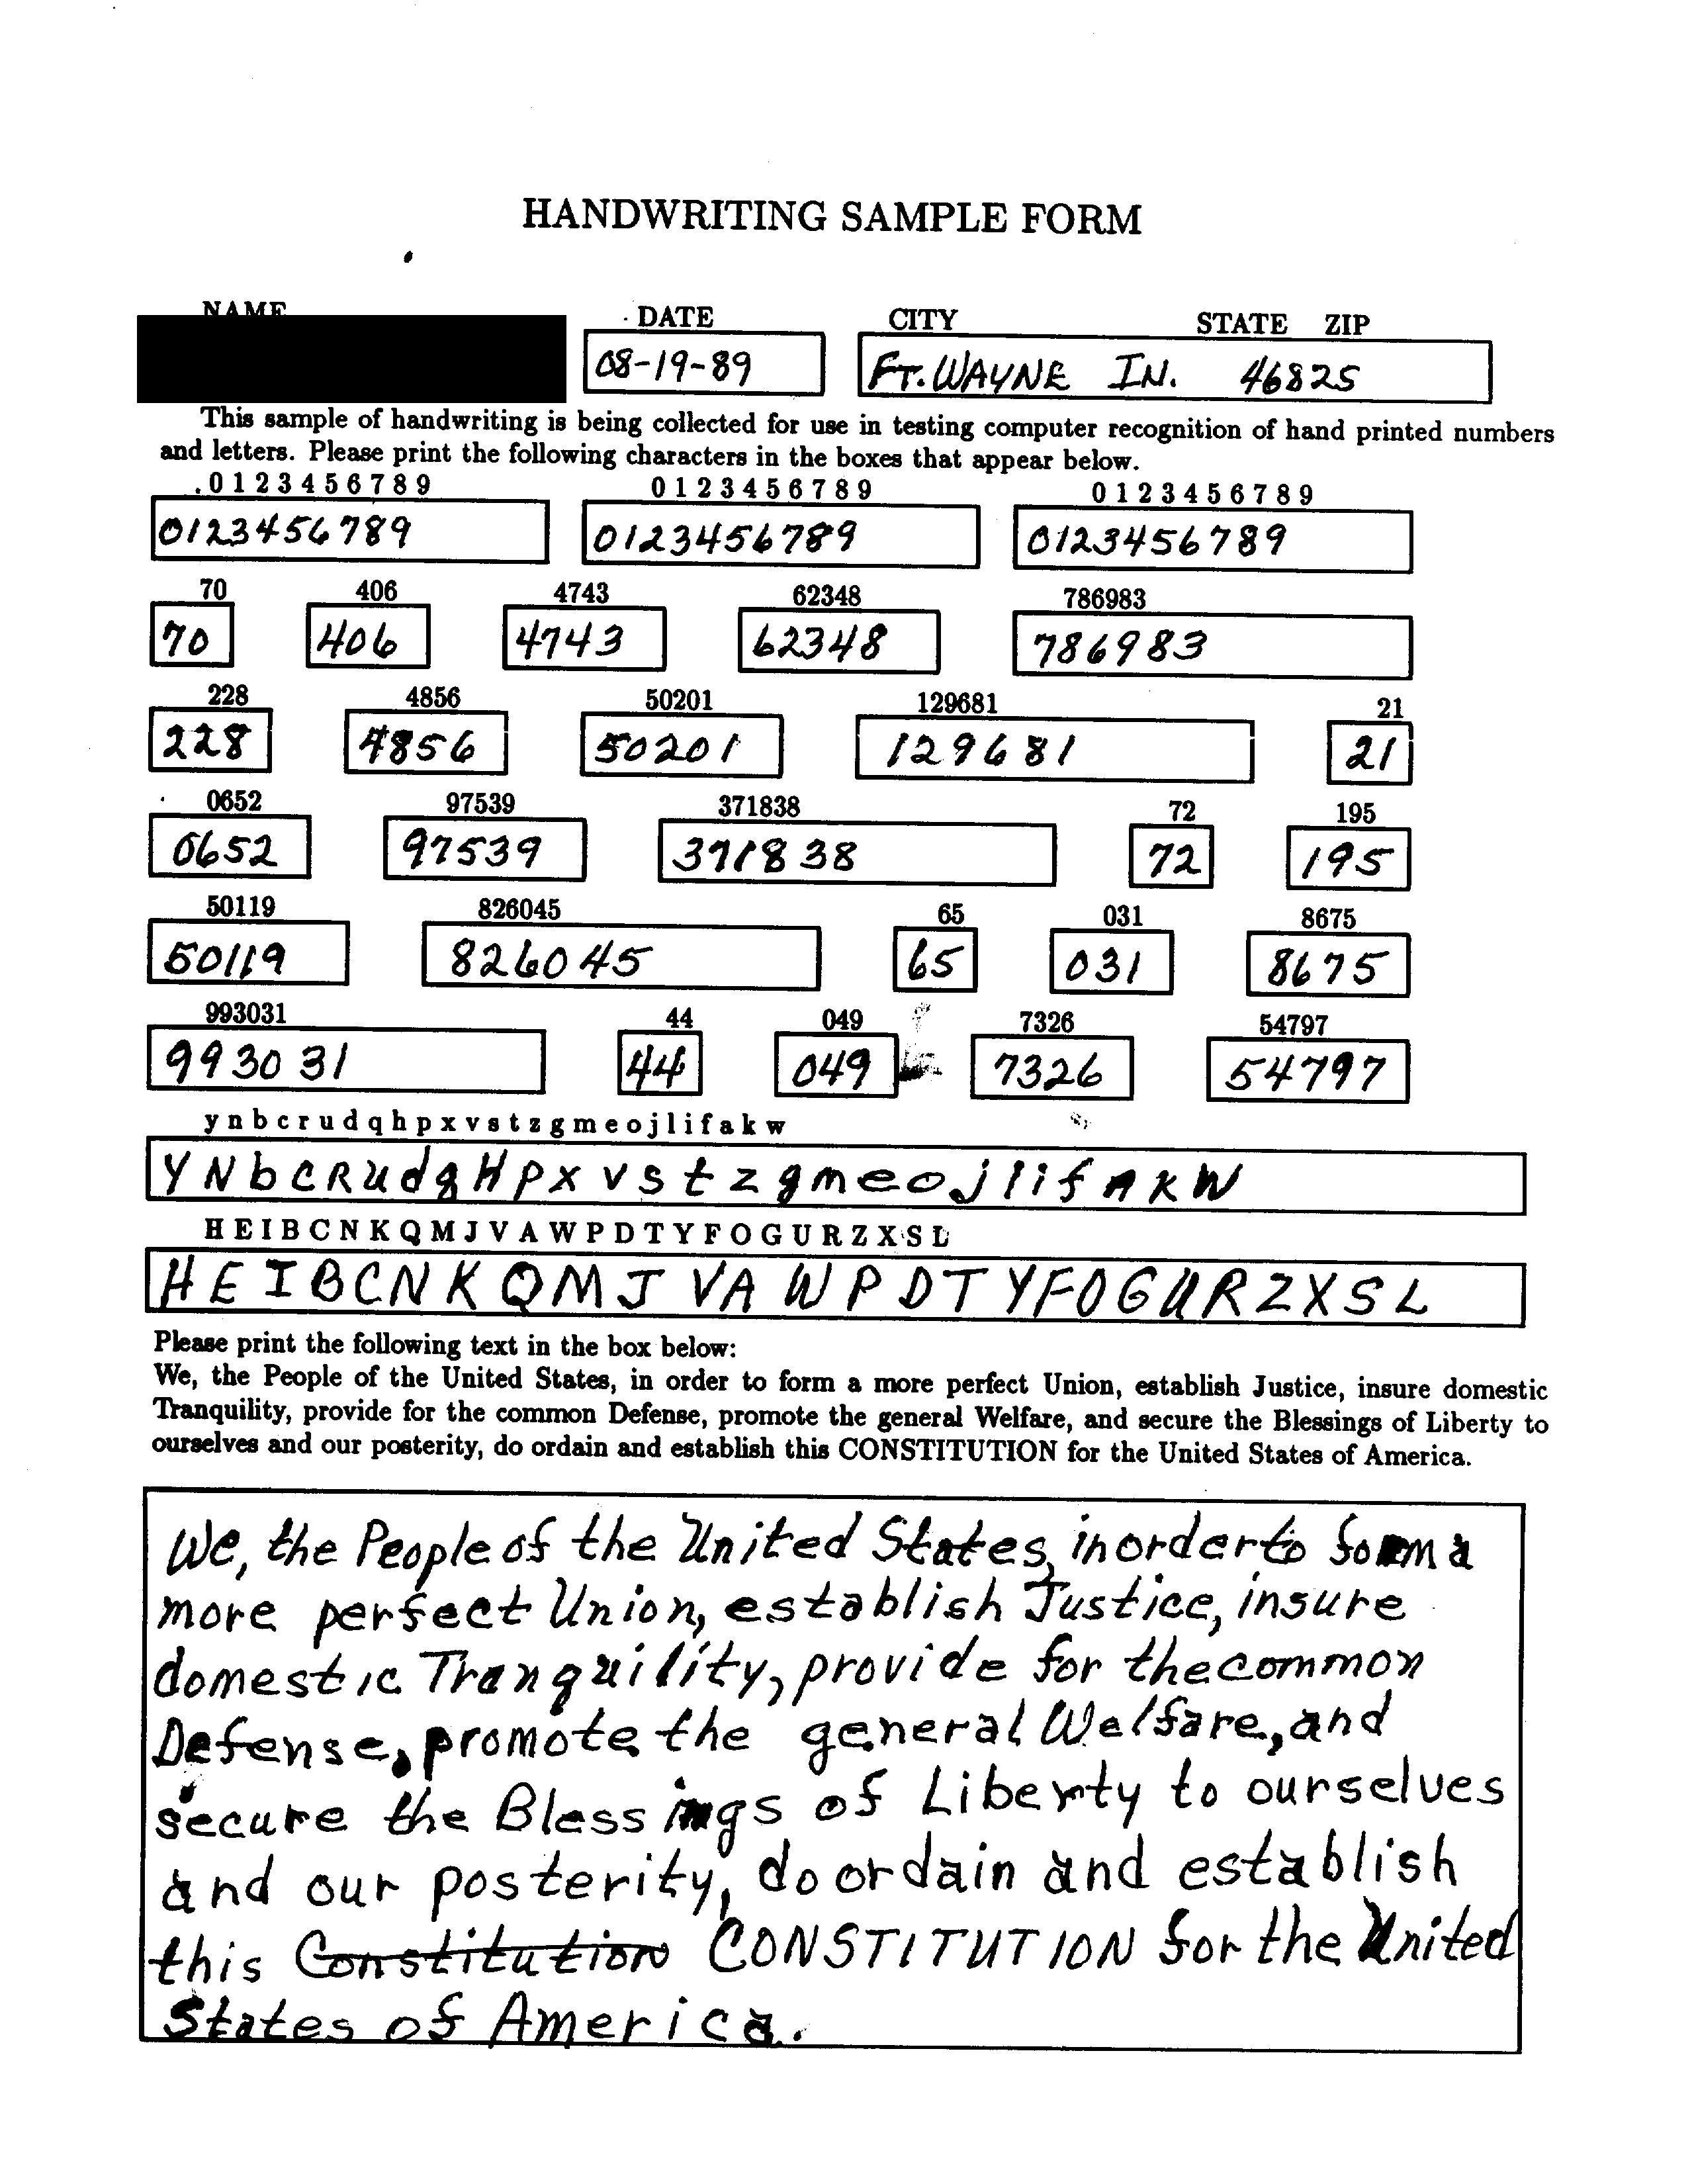 HANDWRITING SAMPLE FORM
NAME DATE CITY STATE ZIP
08-19-89 FT. WAYNE IN. 46825
This sample of handwriting is being collected for use in testing computer recognition of hand printed numbers
and letters. Please print the following characters in the boxes that appear below.
0 1 2 3 4 5 6 7 8 9 0 1 2 3 4 5 6 7 8 9 0 1 2 3 4 5 6 7 8 9
0123456789 0123456789 0123456789
70 406 4743 62348 786983
70 406 4743 62348 786983
228 4856 50201 129681 21
228 4856 50201 129681 21
0652 97539 371838 72 195
0652 97539 371838 72 195
50119 826045 65 031 8675
50119 826045 65 031 8675
993031 44 049 7326 54797
993031 44 049 7326 54797
y n b c r u d q h p x v s t z g m e o j l i f a k w
Y N b C R u d q H P X V S t z g m e o j l i f A K W
H E I B C N K Q M J V A W P D T Y F O G U R Z X S L
H E I B C N K Q M J V A W P D T Y F O G U R Z X S L
Please print the following text in the box below:
We, the People of the United States, in order to form a more perfect Union, establish Justice, insure domestic
Tranquility, provide for the common Defense, promote the general Welfare, and secure the Blessings of Liberty to
ourselves and our posterity, do ordain and establish this CONSTITUTION for the United States of America.
We, the People of the United States, in order to form a
more perfect Union, establish Justice, insure
domestic Tranquility, provide for the common
Defense, promote the general Welfare, and
secure the Blessings of Liberty to ourselves
and our posterity, do ordain and establish
this Constitution CONSTITUTION for the United
States of America.